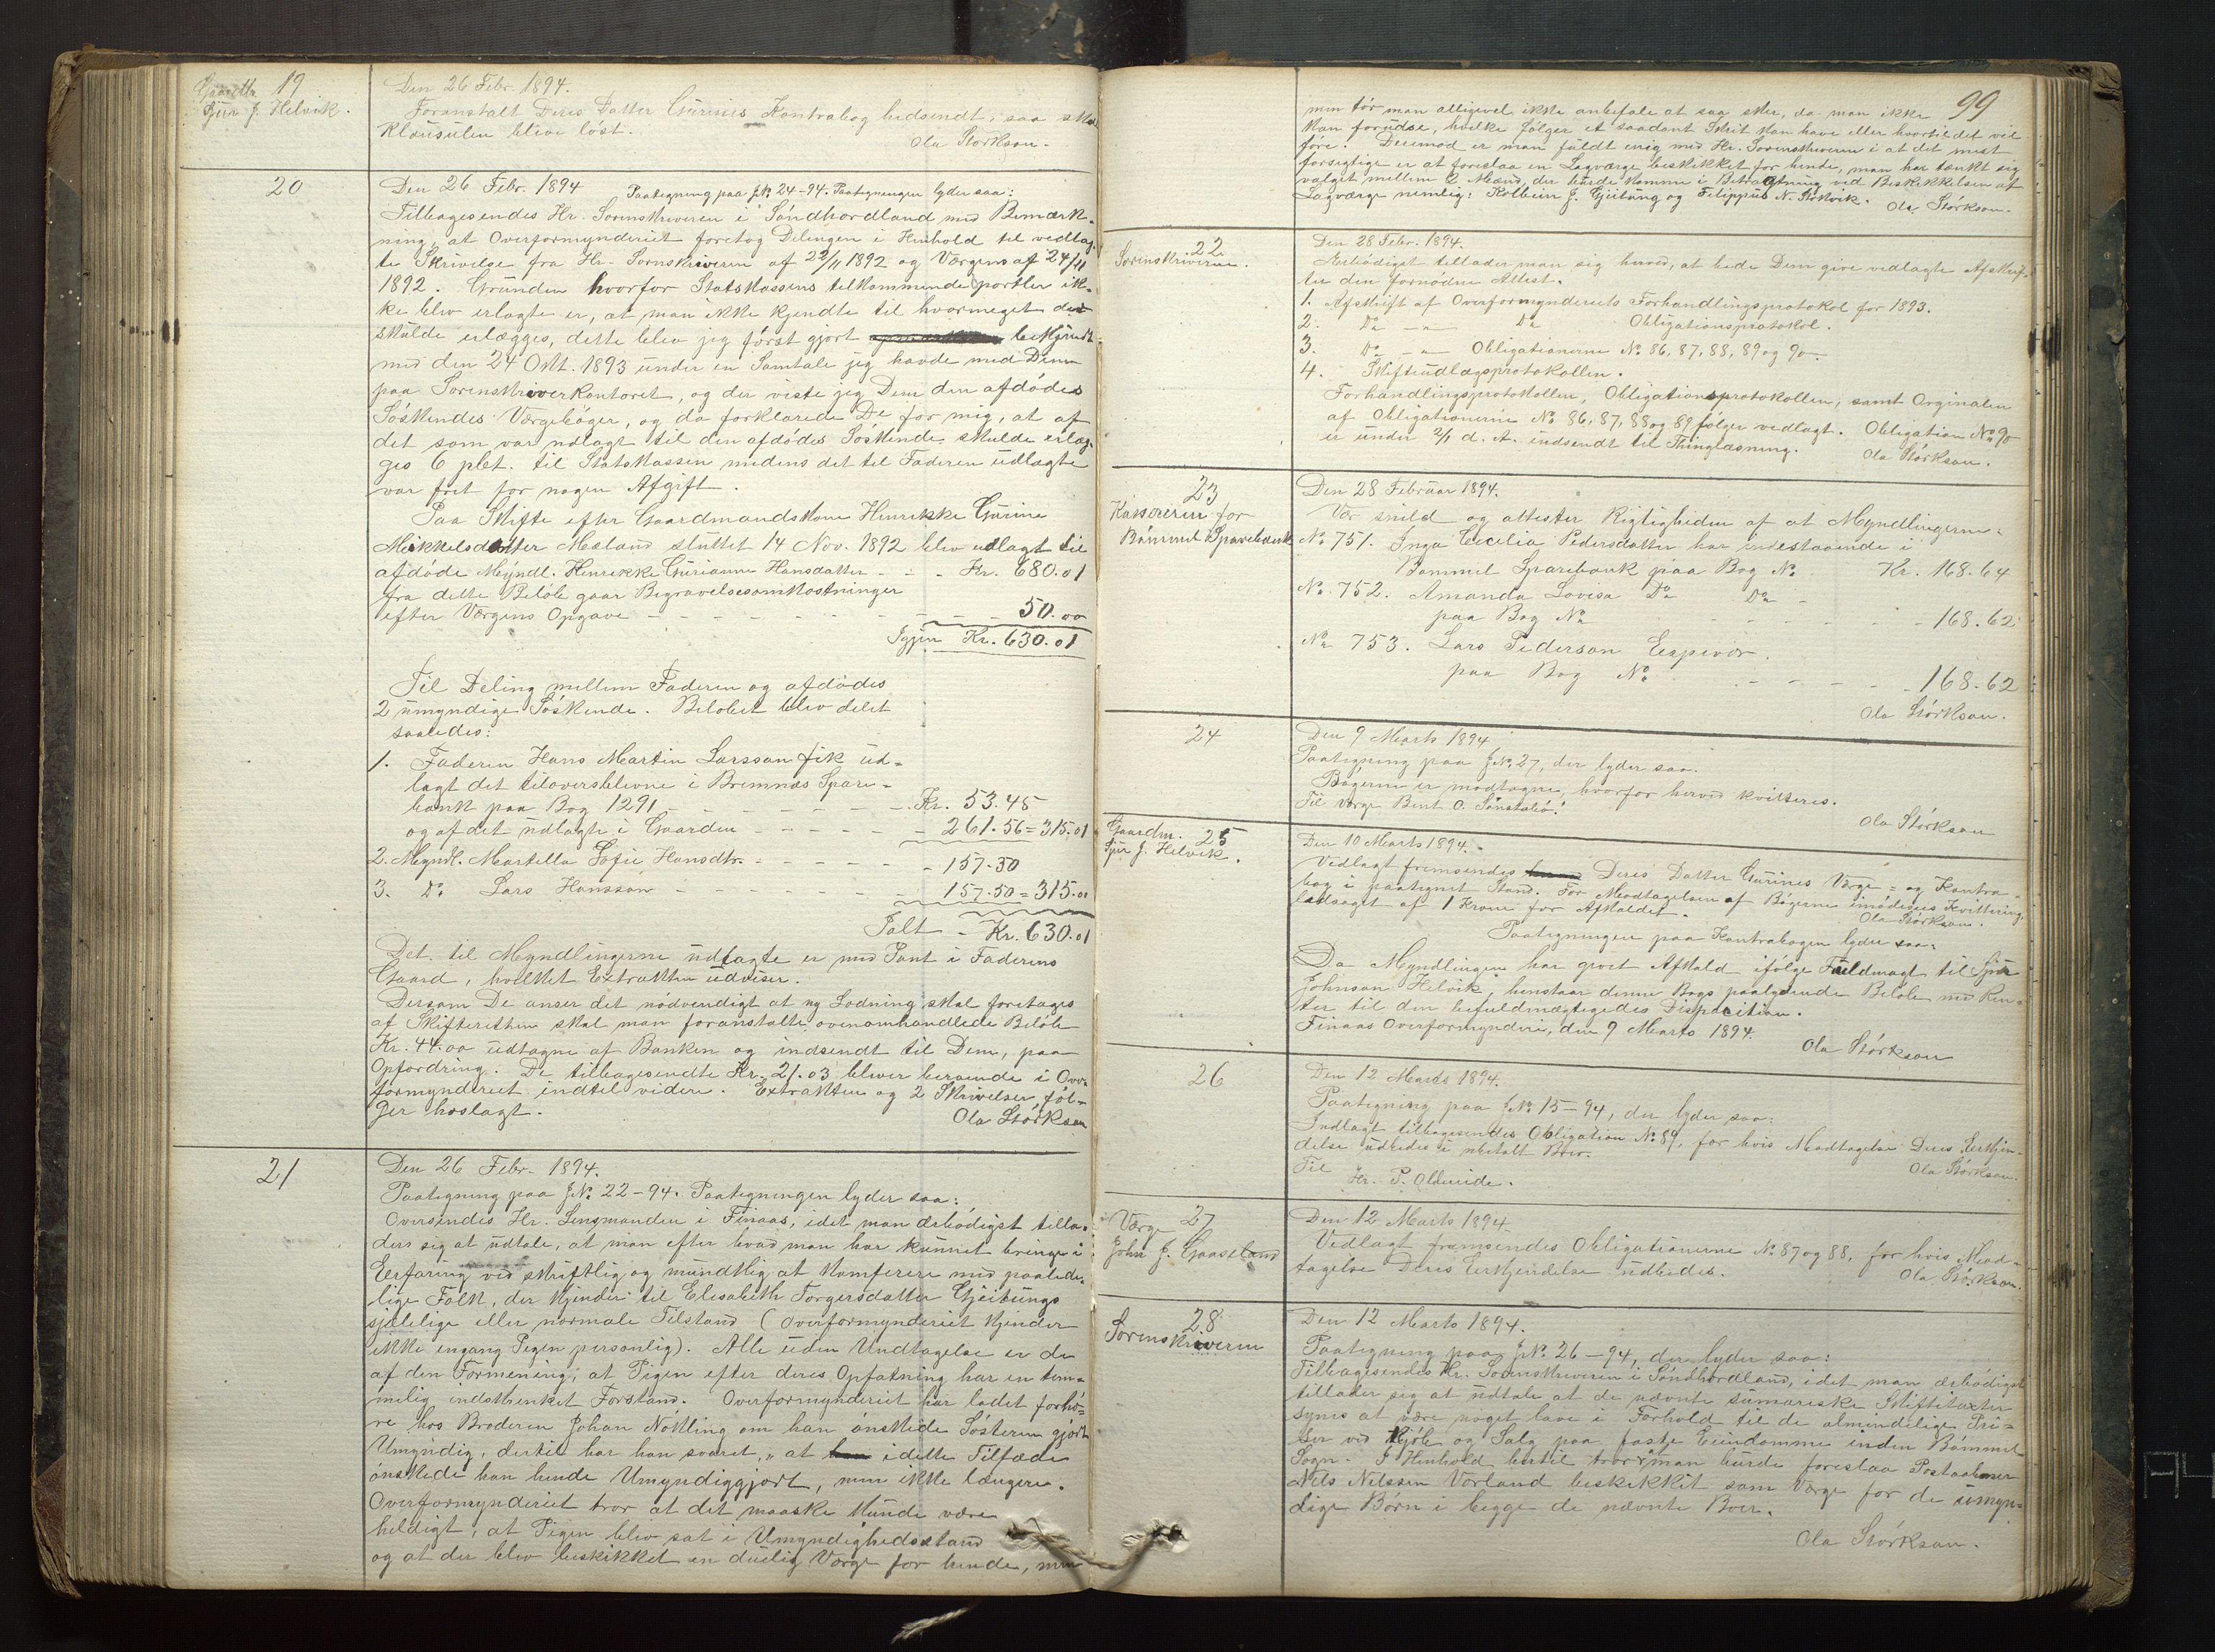 19
Gaardbr.
Sjur J. Helvik.
Den 26 Febr. 1894.
Foranstalt Deres Datter Gurines Kontrabog hidsendt, saa skal
Klausulen blive löst.
Ola Störkson.
20
Den 26 Febr. 1894 Paategning paa JNo. 24-94. Paategningen lyder saa:
Tilbagesendes Hr. Sorenskriveren i Söndhordland med Bemærk-
ning, at Overformynderiet foretog Delingen i Henhold til vedlag-
te Skrivelse fra Hr. Sorenskriveren af 22/11 1892 og Værgens af 24/11
1892. Grunden hvorfor Statskassens tilkommende portler ik-
ke blev erlagte er, at man ikke kjendte til hvormeget der
skulde erlægges, dette blev jeg först gjort bekjendt
med den 24 Okt. 1893 under en Samtale jeg havde med Dem
paa Sorenskriverkontoret, og der viste jeg Dem den afdödes
Söskendes Værgeböger, og da forklarede De for mig, at af
det som var udlagt til den afdödes Söskende skulde erlæg-
ges 6 pCt. til Statskassen medens det til Faderen udlagte
var frit for nogen Afgift.
Paa Skifte efter Gaardmandskone Henrikke Gurine
Meikkelsdatter Mæland sluttet 14 Nov. 1892 blev udlagt til
afdöde Myndl. Henrikke Gurianne Hansdatter - - - Kr. 680.01
fra dette Belöb gaar Begravelsesomkostninger
efter Værgens Opgave - - - - - - - - - 50.00
Igjen Kr. 630.01
Til Deling mellem Faderen og afdödes
2 umyndige Söskende. Belöbet blev delt
saaledes:
1. Faderen Hans Martin Larsson fik ud-
lagt det tiloversblevne i Bremnes Spare-
bank paa Bog 1291 - - - - - - - Kr. 53.45
og af det udlagte i Gaarden - - - - - - 261.56 = 315.01
2. Myndl. Martella Sofie Hansdtr. - - - - - - 157.50
3. Do Lars Hansson - - - - - - - 157.50 = 315.00
Ialt - Kr. 630.01
Det til Myndlingerne udlagte er med Pant i Faderens
Gaard, hvilket Extrakten udviser.
Dersom De anser det nödvendigt at ny Lodning skal foretages
af Skifteretten skal man foranstalte ovenomhandlede Belöb
Kr. 44.00 udtagne af Banken og indsendt til Dem, paa
Opfordring. De tilbagesendte Kr. 21.03 bliver beroende i Over-
formynderiet indtil videre. Extrakten og 2 Skrivelser föl-
ger hoslagt.
Ola Störkson
21
Den 26 Febr. 1894.
Paategning paa JNo. 22-94. Paategningen lyder saa:
Oversendes Hr. Lensmanden i Finaas, idet man ærbödigst tilla-
der sig at udtale, at man efter hvad man har kunnet bringe i
Erfaring ved skriftlig og mundtlig at Komferere med paalide-
lige Folk, der kjender til Elisabeth Torgersdatter Gjeitungs
sjælelige eller normale Tilstand (Overformynderiet kjender
ikke engang Pigen personlig). Alle uden Undtagelse er de
af den Formening, at Pigen efter deres Opfatning har en tem-
melig indskrenket Forstand. Overformynderiet har ladet forhö-
re hos Broderen Johan Nökling om han önskede Sösteren gjort
Umyndig, dertil har han svaret, "at i dette Tilfæde
önskede han hende Umyndiggjort, men ikke længere.
Overformynderiet tror at det maaske kunde være
heldigt, at Pigen blev sat i Umyndighedsstand
og at der blev beskikket en duelig Værge for hende, men
99
men tör man alligevel ikke anbefale at saa sker, da man ikke
kan forudse, hvilke fölger et saadant Skrit kan have eller hvortil det vil
före. Derimod er man fuldt enig med Hr. Sorenskriveren i at det mest
forsigtige er at foreslaa en Lagværge beskikket for hende, man har tænkt sig
valget mellem 2 Mænd, der burde komme i Betragtning ved Beskikkelsen af
Lagværge nemlig: Kolbein J. Gjeitung og Filippus N. Stokvik.
Ola Störkson.
22
Sorenskriveren.
Den 28 Febr. 1894.
Ærbödigst tillader man sig herved, at bede Dem give vedlagte Afskrif-
ter den fornödne Attest.
1. Afskrift af Overformynderiets Forhandlingsprotokol for 1893.
2. Do -"- Do Obligationsprotokol.
3. Do -"- Obligationerne No. 86, 87, 88, 89 og 90.
4. Skifteudlægsprotokollen.
Forhandlingsprotokollen, Obligationsprotokollen, samt Orginalen
af Obligationerne No 86, 87, 88 og 89 fölger vedlagt. Obligation No 90
er under 2/1 d. A. indsendt til Thinglæsning.
Ola Störkson.
23
Kassereren for
Bömmel Sparebank
Den 28 Februar 1894.
Vær snild og attester Rigtigheden af at Myndlingerne:
No 751. Inga Cecilia Pedersdatter har indestaaende i
Bömmel Sparebank paa Bog No. Kr. 168.64
No. 752. Amanda Lovisa Do Do -
paa Bog No - - - - - - 168.62
No 753. Lars Pederson Espevær.
paa Bog No. - - - - - 168.62
Ola Störkson.
24
Den 9 Marts 1894
Paategning paa JNo. 27, der lyder saa.
Bögerne er modtagne, hvorfor herved kvitteres.
Til Værge Bent O. Sönstabö!
Ola Störkson
25
Gaardm.
Sjur J. Helvik.
Den 10 Marts 1894.
Vedlagt fremsendes Deres Datter Gurines Værge- og Kontra-
bog i paategnet Stand. For Modtagelsen af Bögerne imödesees Kvittering,
ledsaget af 1 Krone for Afkaldet.
Ola Störkson.
Paategningen paa Kontrabogen lyder saa:
Da Myndlingen har givet Afkald ifölge Fuldmagt til Sjur
Johnson Helvik, henstaar denne Bogs paalydende Belöb med Ren-
ter til den befuldmægtigedes Disposition.
Finaas Overformynderi, den 9 Marts 1894.
Ola Störkson
26
Den 12 Marts 1894.
Paategning paa JNo. 15-94, der lyder saa:
Indlagt tilbagesendes Obligation No. 89, for hvis Modtagelse Deres Erkjen-
delse udbedes i ubetalt Brev.
Til
Hr. P. Olderide.
Ola Störkson.
27
Værge
John J. Gaaseland
Den 12 Marts 1894.
Vedlagt fremsendes Obligationerne No. 87 og 88, for hvis Mod-
tagelse Deres Erkjendelse udbedes.
Ola Störkson.
28
Sorenskriveren
Den 12 Marts 1894.
Paategning paa JNo. 26-94, der lyder saa:
Tilbagesendes Hr. Sorenskriveren i Söndhordland, idet man ærbödigst
tillader sig at udtale at de nævnte sumariske Skiftetaxter
synes at være noget lave i Forhold til de almindelige Pri-
ser ved Kjöb og Salg paa faste Eiendomme inden Bömmel
Sogn. I Henhold hertil tror man burde foreslaa Postaabner
Nils Nilssen Vorland beskikket som Værge for de umyn-
dige Börn i begge de nævnte Boer.
Ola Störkson.